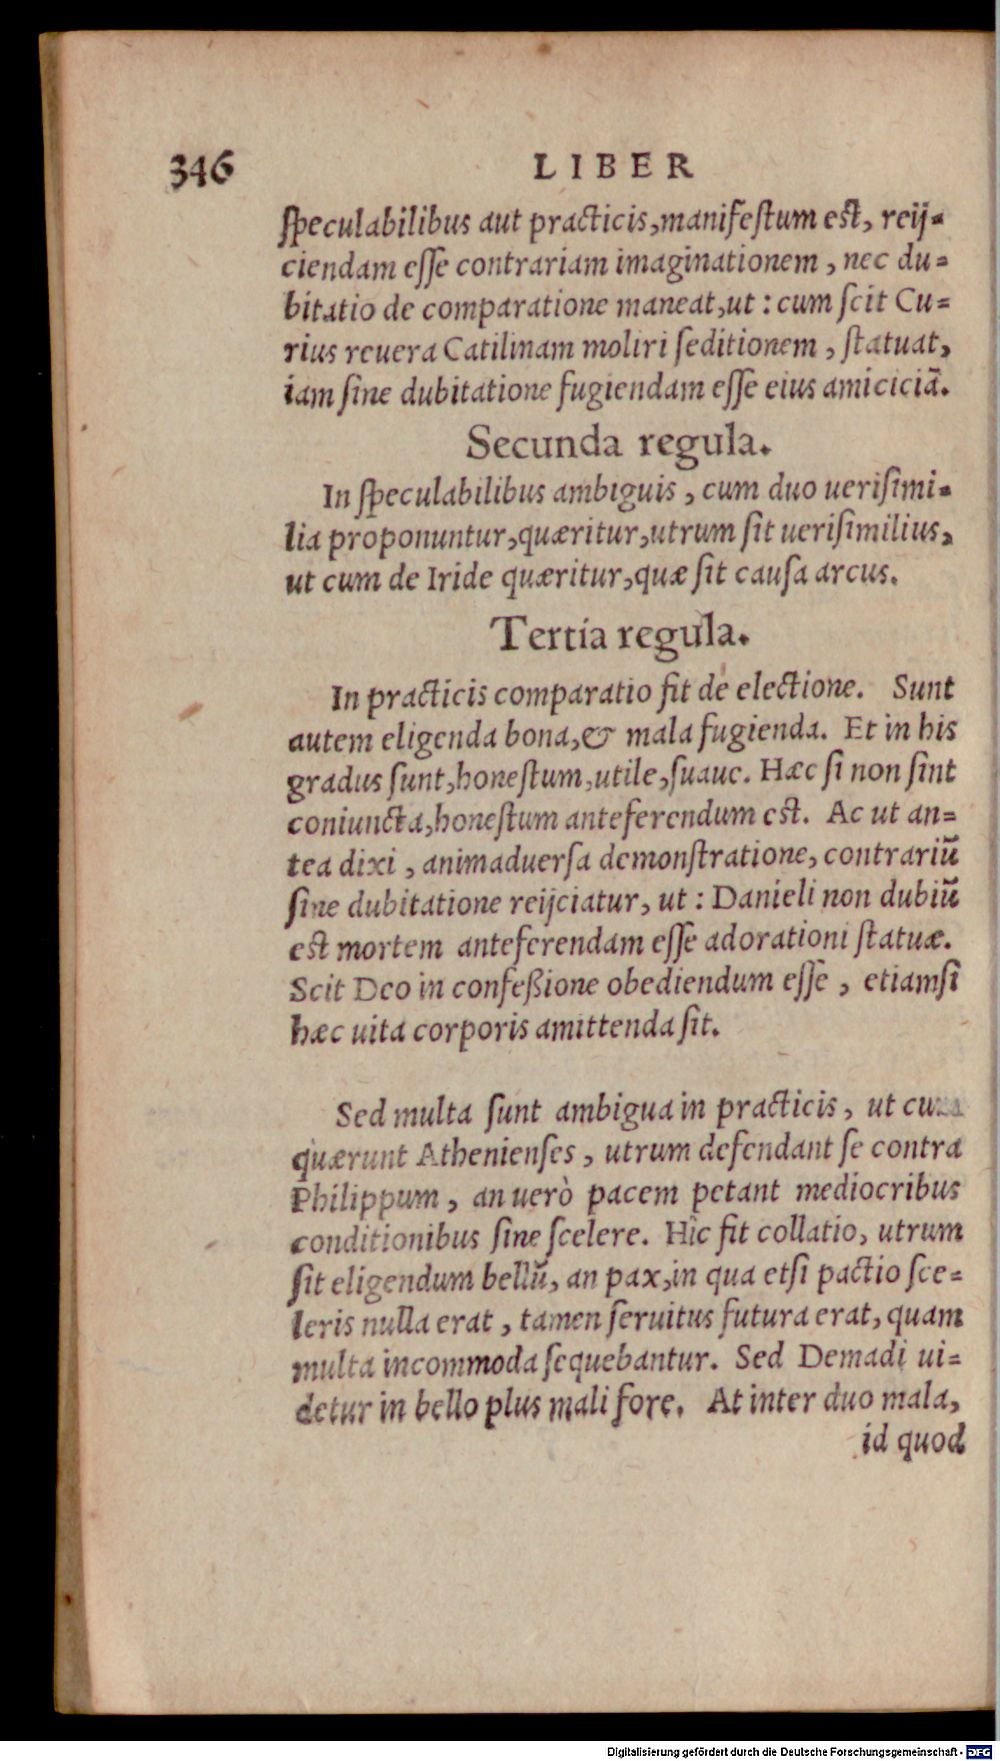 346 LIBER
ſpeculabilibus aut practicis, manifeſtum eſt, reij-
ciendam eſſe contrariam imaginationem, nec du-
bitatio de comparatione maneat, ut: cum ſcit Cu-
rius reuera Catilinam moliri ſeditionem, ſtatuat,
iam ſine dubitatione fugiendam eſſe eius amiciciā.
Secunda regula.
In ſpeculabilibus ambiguis, cum duo ueriſimi-
lia proponuntur, quæritur, utrum ſit ueriſimilius,
ut cum de Iride quæritur, quæ ſit cauſa arcus.
Tertia regula.
In practicis comparatio fit de electione. Sunt
autem eligenda bona, & mala fugienda. Et in his
gradus ſunt, honeſtum, utile, ſuaue. Hæc ſi non ſint
coniuncta, honeſtum anteferendum eſt. Ac ut an-
tea dixi, animaduerſa demonſtratione, contrariū
ſine dubitatione reijciatur, ut: Danieli non dubiū
eſt mortem anteferendam eſſe adorationi ſtatuæ.
Scit Deo in confeßione obediendum eſſe, etiamſi
hæc uita corporis amittenda ſit.
Sed multa ſunt ambigua in practicis, ut cum
quærunt Athenienſes, utrum defendant ſe contra
Philippum, an uerò pacem petant mediocribus
conditionibus ſine ſcelere. Hîc fit collatio, utrum
ſit eligendum bellū, an pax, in qua etſi pactio ſce-
leris nulla erat, tamen ſeruitus futura erat, quam
multa incommoda ſequebantur. Sed Demadi ui-
detur in bello plus mali fore. At inter duo mala,
id quod
Digitalisierung gefördert durch die Deutsche Forschungsgemeinschaft - DFG